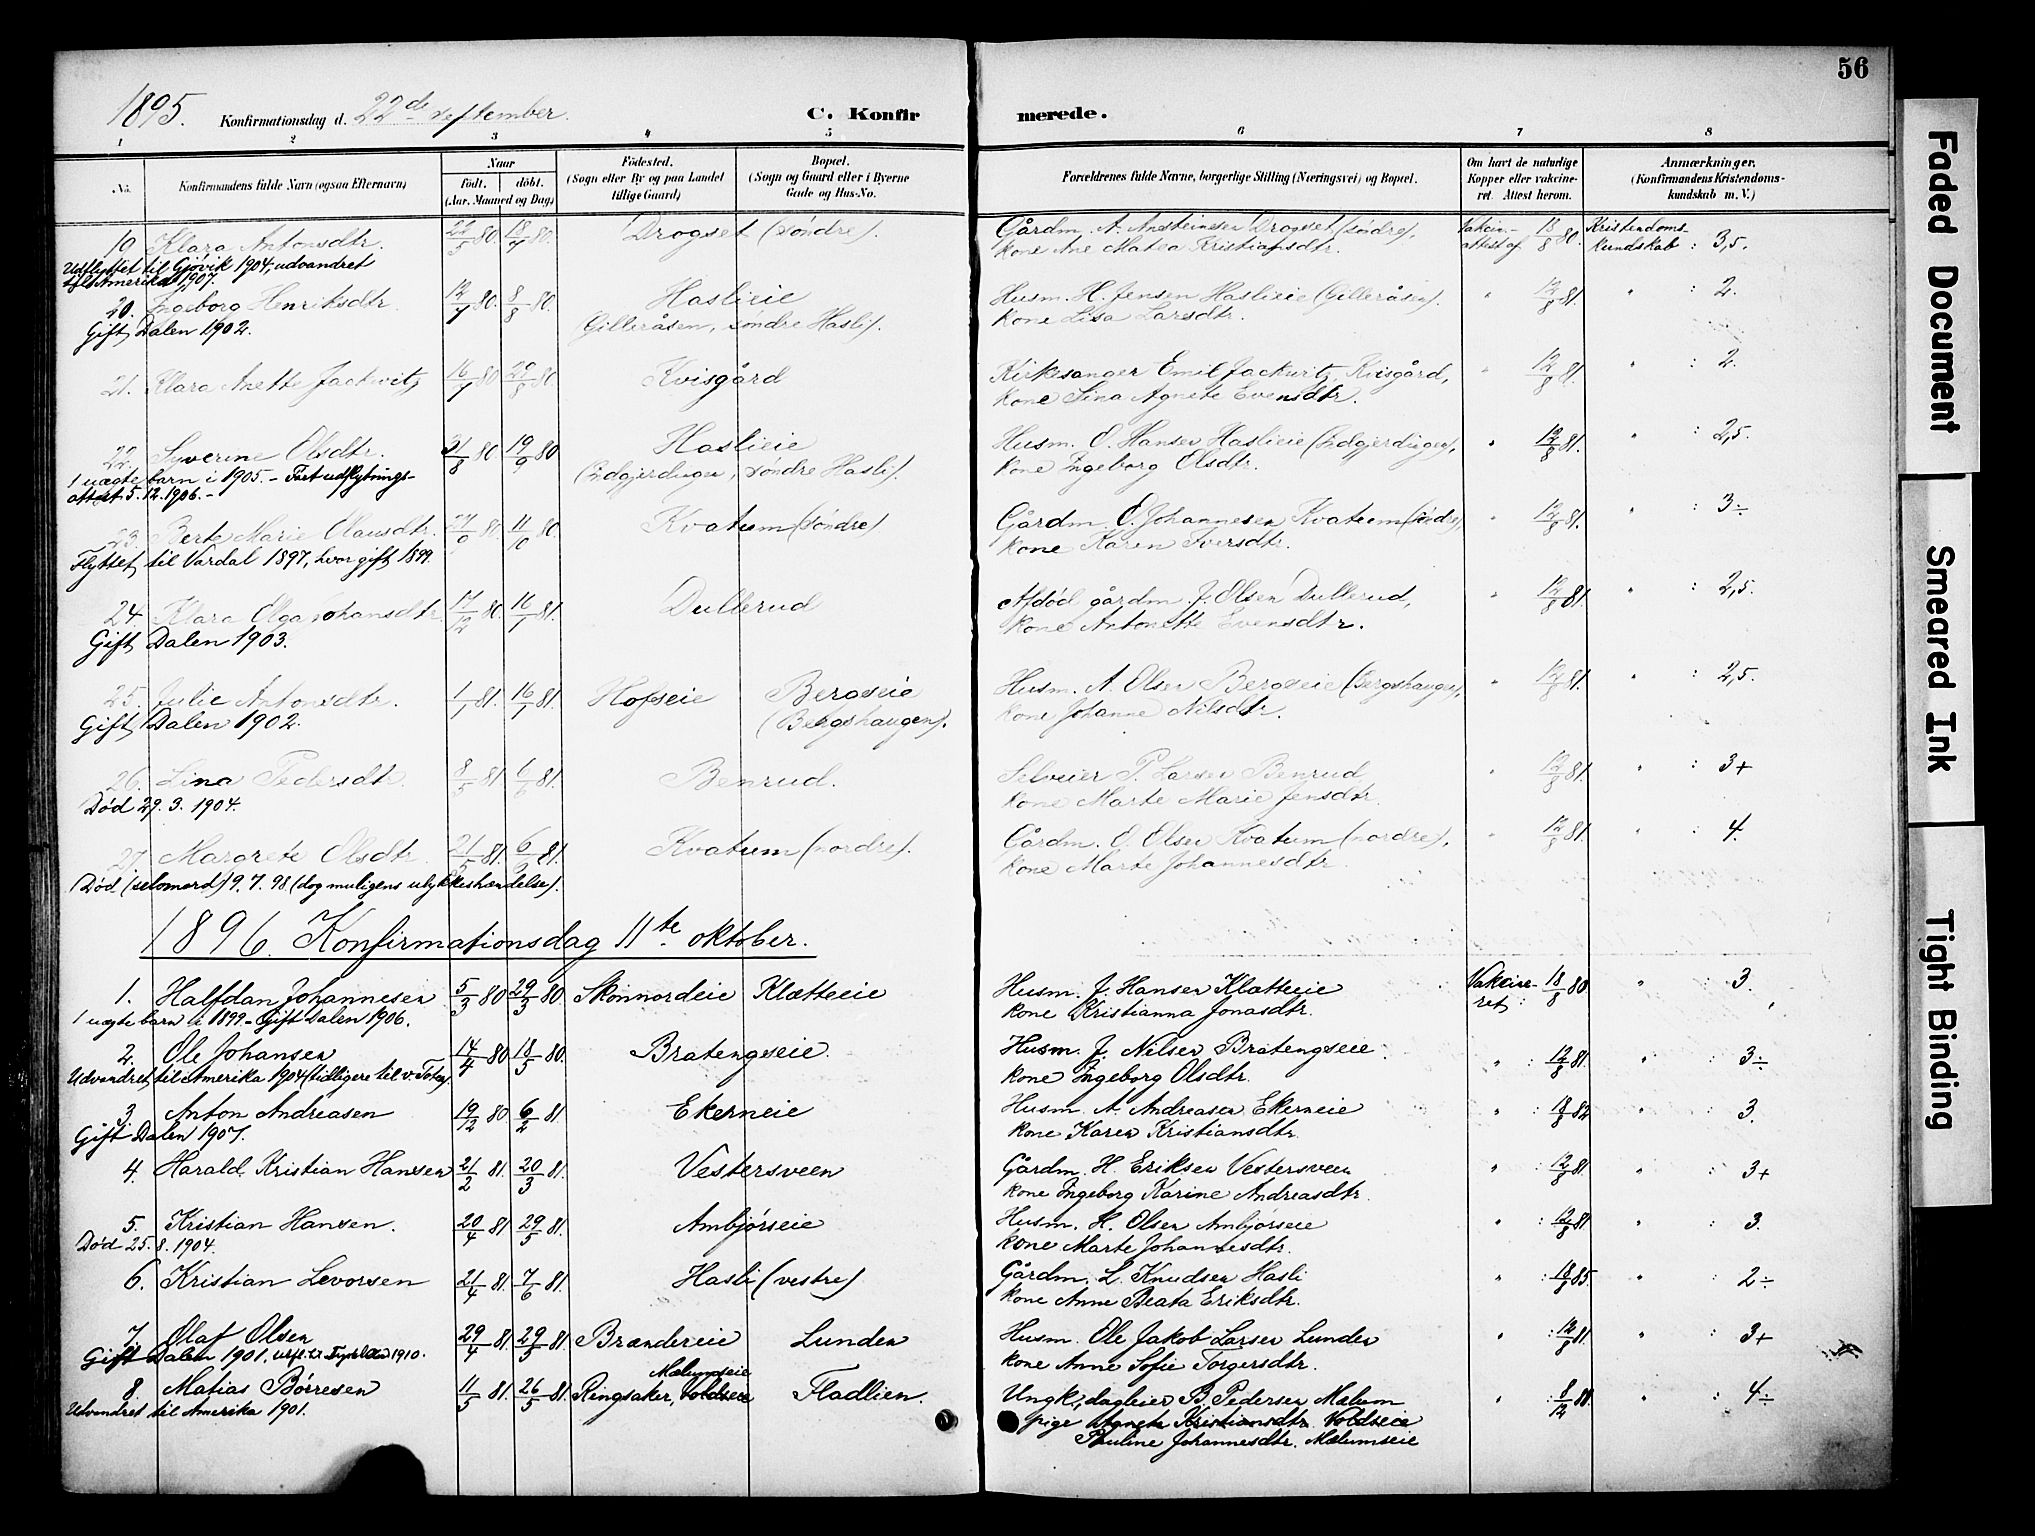 56
1895. Konfirmationsdag d. 22de september. C. Konfirmerede.
1 2 3 4 5 6 7 8
No. Konfirmandens fulde Navn (ogsaa Efternavn) Naar født. døbt. (Aar, Maaned og Dag) Fødested. (Sogn eller By og paa Landet tillige Gaard) Bopæl. (Sogn og Gaard eller i Byerne Gade og Hus-No. Forældrenes fulde Navne, borgerlige Stilling (Næringsvei) og Bopæl. Om havt de naturlige Kopper eller vakcineret. Attest herom. Anmærkninger. (Konfirmandens Kristendomskundskab m. V.)
19 Klara Antonsdtr. 22/5 80. 18/7 80. Drogset (søndre). Gårdm. A. Amsteinsen Drogset (søndre), Vakcin- 18/8 80. Kristendoms-
Udflyttet til Gjøvik 1904, udvandret kone Ane Matea Kristiansdtr. attest af kundskab : 3,5.
til Amerika 1907.
20. Ingeborg Henriksdtr. 12/7 80. 8/8 80. Haslieie Husm. H. Jensen Haslieie (Gilleråsen). " 12/8 81. " : 2.
Gift, Dalen 1902. Gilleråsen, søndre Hasli). kone Lisa Larsdtr.
21. Klara Anette Jackwitz 16/7 80 29/8 80 Kvisgård Kirkesanger Emil Jackwitz, Kvisgård, " 12/8 81. " : 2.
kone Lina Agnete Evensdtr.
22. Syverine Olsdtr. 31/8 80 19/9 80 Haslieie Husm. O. Hansen Haslieie " 12/8 81. " : 2,5.
1 uægte barn i 1905. - Faet udflytnings- søndre Hasli). kone Ingeborg Olsdtr.
attest 5.12.1906. -
23. Berte Marie Olausdtr. 80. 11/10 80. Kvatum (søndre) Gårdm. O. Johannesen Kvatum (søndre), " 12/8 81. " : 3÷
Flyttet til Vardal 1897, hvor gift 1899. kone Karen Iversdtr.
24. Klara Olga Johansdtr. 17/12 80. 16/1 81. Dullerud Afdød gårdm. J. Olsen Dullerud, " 12/8 81. " : 2,5.
Gift, Dalen 1903. kone Antonette Evensdtr.
25. Julie Antonsdtr. 1/1 81. 16/1 81. Hofseie Bergseie Husm. A. Olsen Bergseie (Bergshaugen), " 12/8 81. " : 2,5.
Gift, Dalen 1902. (Bergshaugen). kone Johanne Nilsdtr.
26. Lina Pedersdtr. 8/5 81. 6/6 81. Benrud. Selveier P. Larsen Benrud " 12/8 81. " : 3+
Død 29.3.1904. kone Marte Marie Jensdtr.
27. Margrete Olsdtr. 21/5 81. 6/6 81. Kvatum (nordre). Gårdm. O. Olsen Kvatum (nordre), " 12/8 81. " : 4.
Død (selvmord) 9.7.98 (dog muligens ulykkeshændelse). kone Marte Johannesdtr.
1896. Konfirmationsdag 11te oktober.
1. Halfdan Johannesen 5/3 80 29/3 80. Skonnordeie Klætteeie Husm. J. Hansen Klætteeie Vakcine- 18/8 80. " 3.
1 uægte barn i 1899. - Gift Dalen 1906. kone Kristianna Jonasdtr. ret :
2. Ole Johansen 14/4 80 18/5 80. Bratengseie. Husm. J. Nilsen Bratengseie. " : 12/8 81. " : 3÷
Udvandret til Amerika 1904 (tidligere til v. Toten). kone Ingeborg Olsdtr.
3. Anton Andreasen 19/12 80. 6/2 81. Ekerneie Husm. A. Andreasen Ekerneie " : 18/8 82 " : 3.
Gift, Dalen 1907. kone Karen Kristiansdtr.
4. Harald Kristian Hansen 21/2 81. 20/3 81. Vestersveen Gårdm. H. Eriksen Vestersveen " : 12/8 81. " : 3+
kone Ingeborg Karine Andreasdtr.
5. Kristian Hansen. 20/4 81 29/5 81. Ambjørseie Husm. H. Olsen Ambjørseie " : 12/8 81 " : 3.
Død 25.8.1904. kone Marte Johannesdtr.
6. Kristian Levorsen 21/4 81. 7/6 81. Hasli (vestre) Gårdm. L. Knudsen Hasli " : 18/8 85. " : 2÷
kone Anne Beata Eriksdtr.
7. Olaf Olsen 29/4 81. 29/5 81. Brændereie Lunden Husm. Ole Jakob Larsen Lunden " : 12/8 81. " : 3+
Gift Dalen 1901. 1910. kone Anne Sofie Torgersdtr.
8. Matias Børresen 11/5 81. 26/5 81. Ringsaker, Mælumseie Fladlien. Ungk., dagleier B. Pedersen Mælum " : 8/12 88. " : 4÷
Udvandret til Amerika 1901. pige Agnete Kristiansdtr. Voldseie
Pauline Johannesdtr. Mælumseie
Faded Document
Smeared Ink
Tight Binding